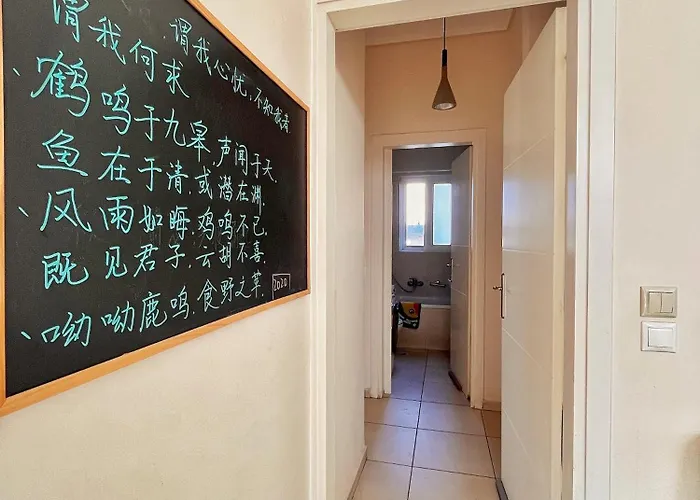 谓我心忧,不知我者
谓我何求
鹤鸣于九皋,声闻于天.
鱼在于清,或潜在渊.
风雨如晦,鸡鸣不已.
既见君子,云胡不喜.
呦呦鹿鸣,食野之草.
2020